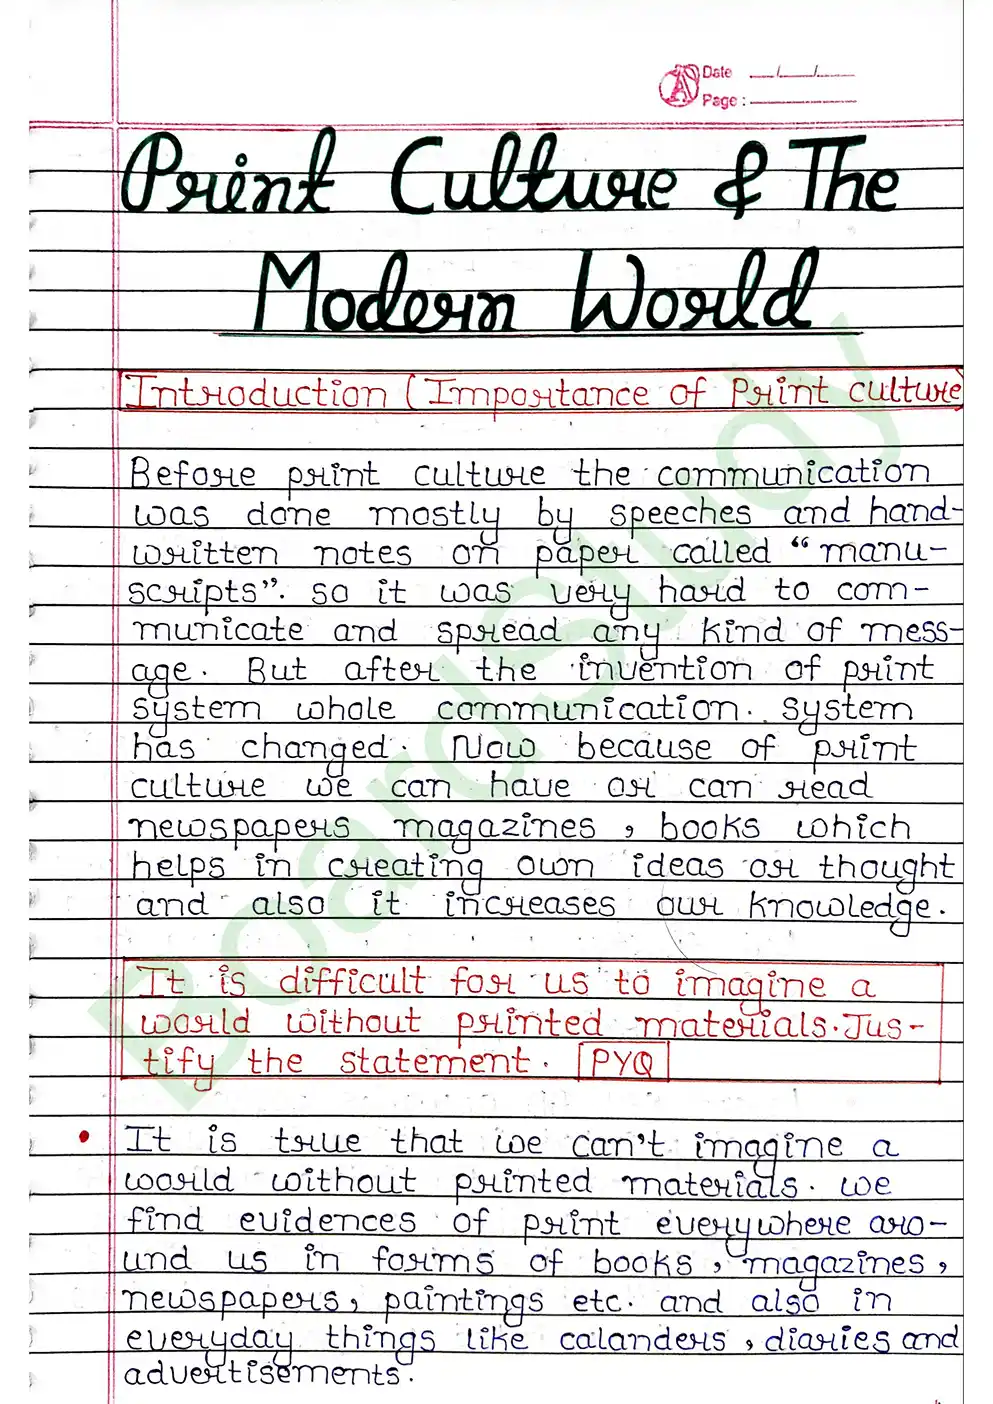 Date __/__/__
Page : ____
Print Culture & The
Modern World
Introduction (Importance of Print culture
Before print culture the communication
was done mostly by speeches and hand-
written notes on paper called "manu-
scripts". so it was very hard to com-
municate and spread any kind of mess-
age. But after the invention of print
system whole communication. system
has changed. Now because of print
culture we can have or can read
newspapers magazines, books which
helps in creating own ideas or thought
and also it increases our knowledge.
It is difficult for us to imagine a
world without printed materials. Jus-
tify the statement. PYQ
• It is true that we can't imagine a
world without printed materials. we
find evidences of print everywhere aro-
und us in forms of books, magazines,
newspapers, paintings etc. and also in
everyday things like calanders, diaries and
advertisements.
BoardStudy